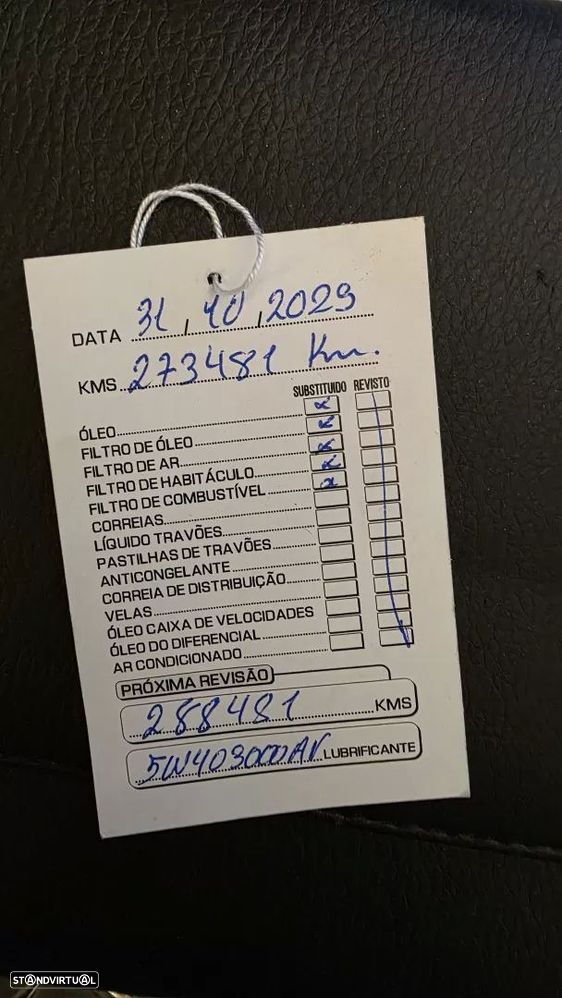 DATA 31,10,2023
KMS 273481 Km.
SUBSTITUIDO REVISTO
ÓLEO x
FILTRO DE ÓLEO x
FILTRO DE AR x
FILTRO DE HABITÁCULO x
FILTRO DE COMBUSTÍVEL x
CORREIAS
LÍQUIDO TRAVÕES
PASTILHAS DE TRAVÕES
ANTICONGELANTE
CORREIA DE DISTRIBUIÇÃO
VELAS
ÓLEO CAIXA DE VELOCIDADES
ÓLEO DO DIFERENCIAL
AR CONDICIONADO
PRÓXIMA REVISÃO
288481 KMS
5W40 LUBRIFICANTE
STANDVIRTUAL